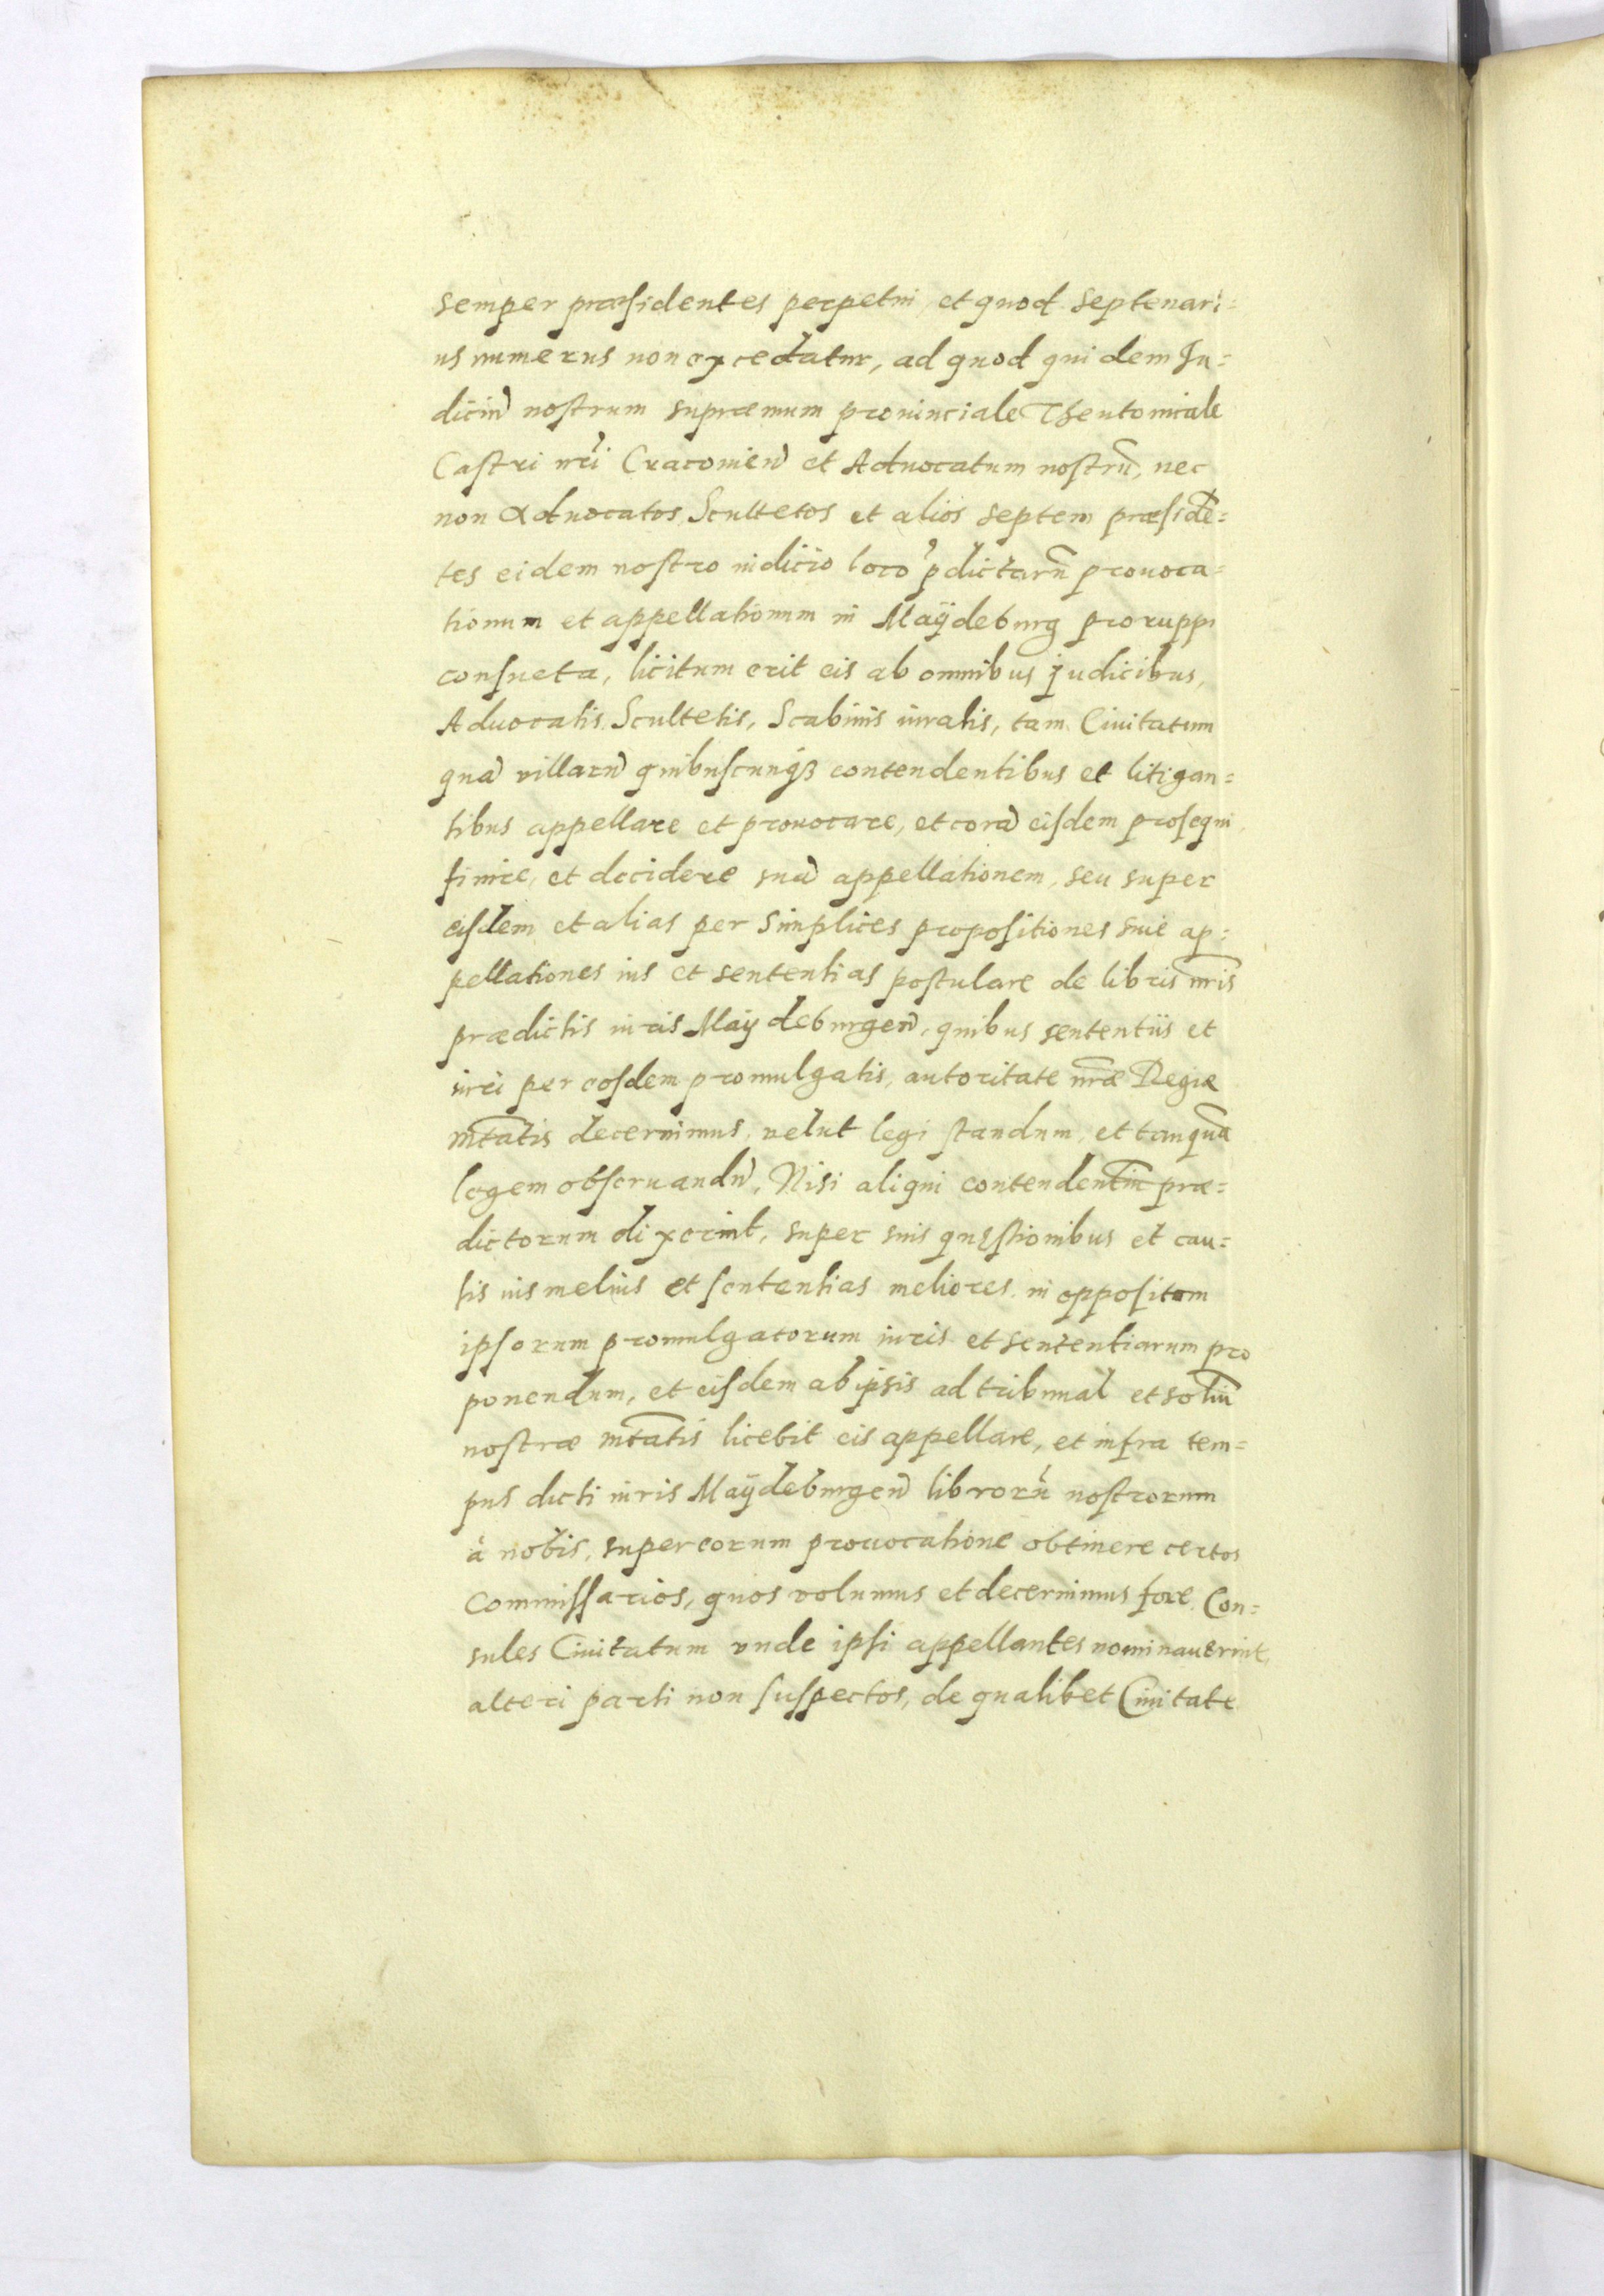 semper præsidentes perpetui, et quod septenari=
us numerus non excedatur, ad quod quidem Iu=
diciũ nostrum supræmum prouinciale Theutonicale
Castri nr̃i Cracouieñ et Aduocatum nostrũ, nec
non Aduocatos Scultetos et alios septem præsidẽ=
tes eidem nostro iudicio loco p̃dictarũ prouoca=
tionum et appellationum in Maÿdeburg proruppi
consueta, licitum erit eis ab omnibus judicibus,
Aduocatis Scultetis, Scabinis iuratis, tam Ciuitatum
quã villarũ quibuscunqȝ contendentibus et litigan=
tibus appellare et prouocare, et corã eisdem prosequi
finire, et decidere suã appellationem, seu super
eisdem et alias per simplices propositiones siue ap=
pellationes ius et sententias postulare de libris nr̃is
prædictis iuris Maÿdeburgeñ, quibus sententiis et
iuri per eosdem promulgatis, autoritate nr̃æ Regiæ
mtatis decernimus, velut legi standum, et tanquã
legem obseruandũ, Nisi aliqui contendentiũ præ=
dictorum dixerint, super suis quęstionibus et cau=
sis ius melius et sententias meliores in oppositum
ipsorum promulgatorum iuris et sententiarum pro
ponendum, et eisdem ab ipsis ad tribunal et soliũ
nostræ mtatis licebit eis appellare, et infra tem=
pus dicti iuris Maÿdeburgeñ librorũ nostrorum
à nobis, super eorum prouocatione obtinere certos
Commissarios, quos volumus et decernimus fore, Con=
sules Ciuitatum vnde ipsi appellantes nominauerint,
alteri parti non suspectos, de qualibet Ciuitate